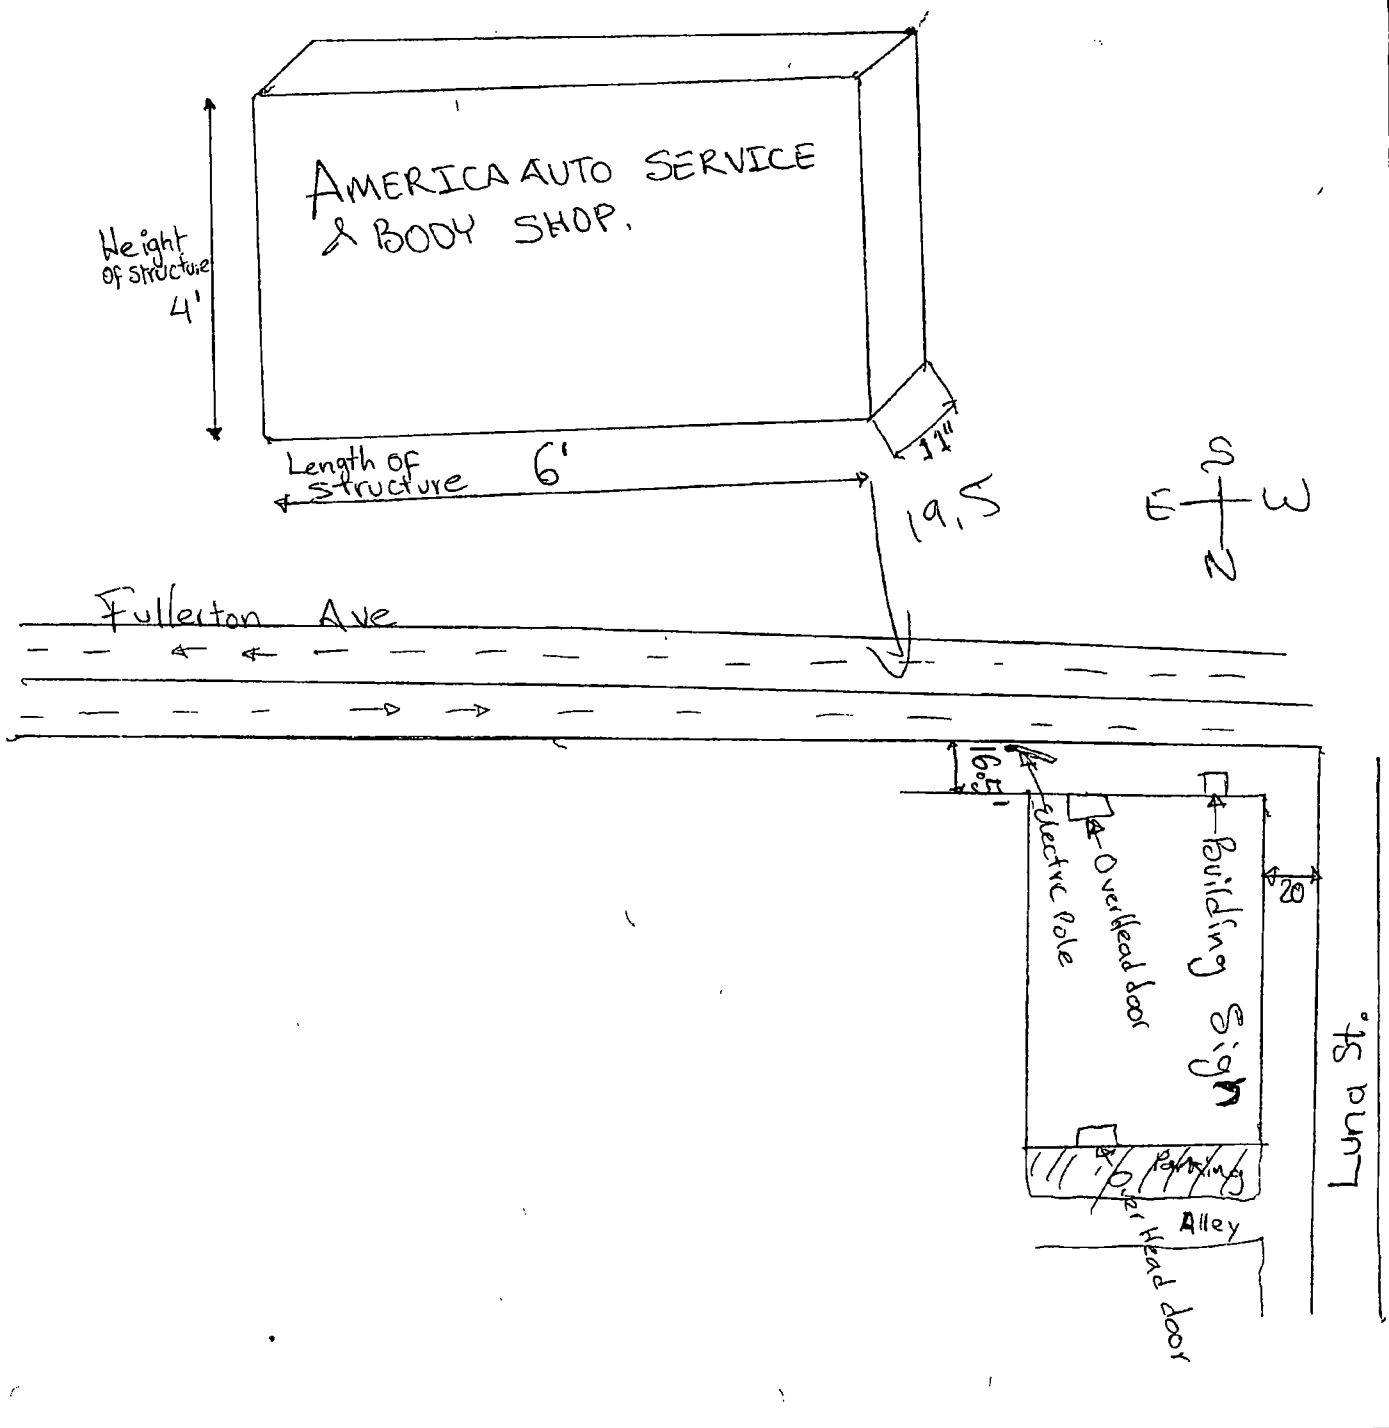 AMERICA AUTO SERVICE
& BODY SHOP.
Height
of structure
4'
Length of
structure
6'
11"
19.5
S
E W
N
Fullerton Ave
16.5'
Electric Pole
OverHead door
Building Sign
20
Luna St.
Parking
OverHead door
Alley